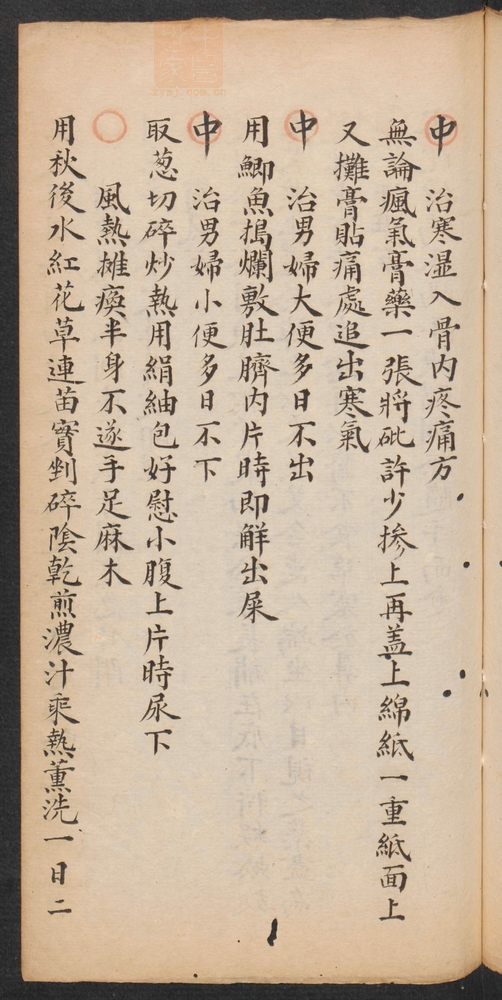 中 治寒湿入骨内疼痛方
無論瘋氣膏藥一張將砒許少摻上再盖上綿紙一重紙面上
又攤膏貼痛處追出寒氣
中 治男婦大便多日不出
用鯽魚搗爛敷肚臍内片時即解出屎
中 治男婦小便多日不下
取葱切碎炒熱用絹紬包好慰小腹上片時尿下
〇 風熱摊瘓半身不遂手足麻木
用秋後水紅花草連苗實剉碎陰乾煎濃汁乘熱薰洗一日二